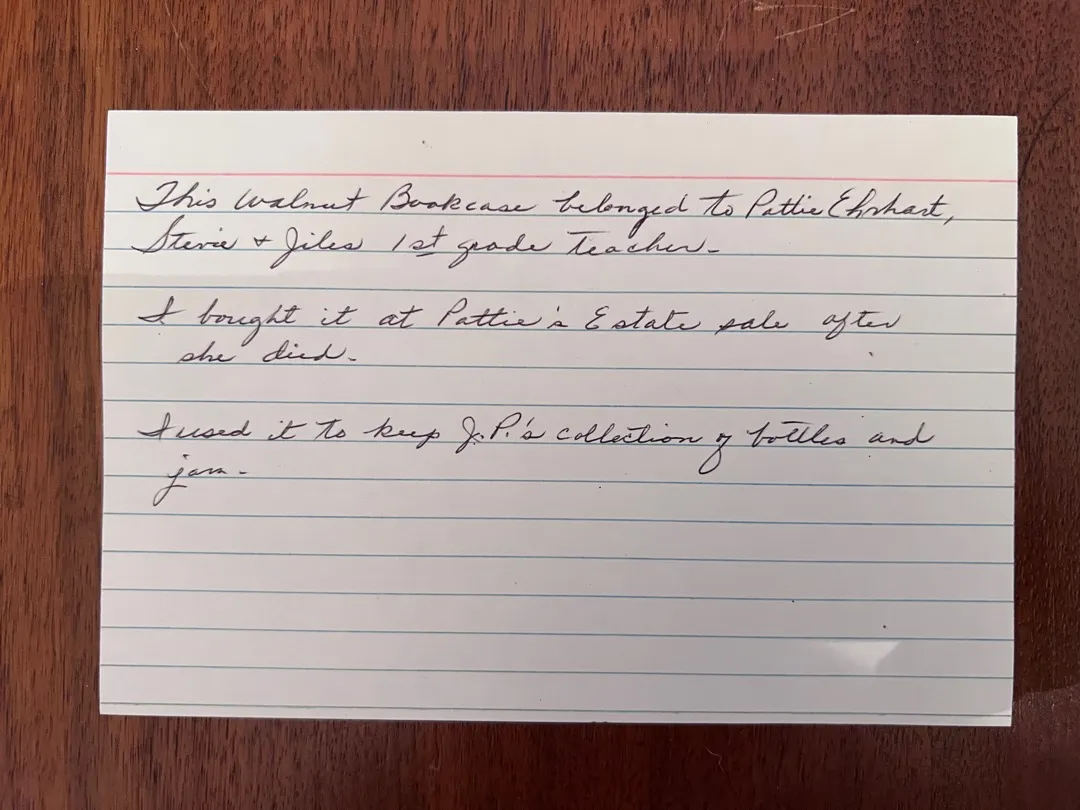 This Walnut Bookcase belonged to Pattie Ehrhart,
Stevie + Jiles 1st grade Teacher.
I bought it at Pattie's Estate sale after
she died.
I used it to keep J.P.'s collection of bottles and
jars.